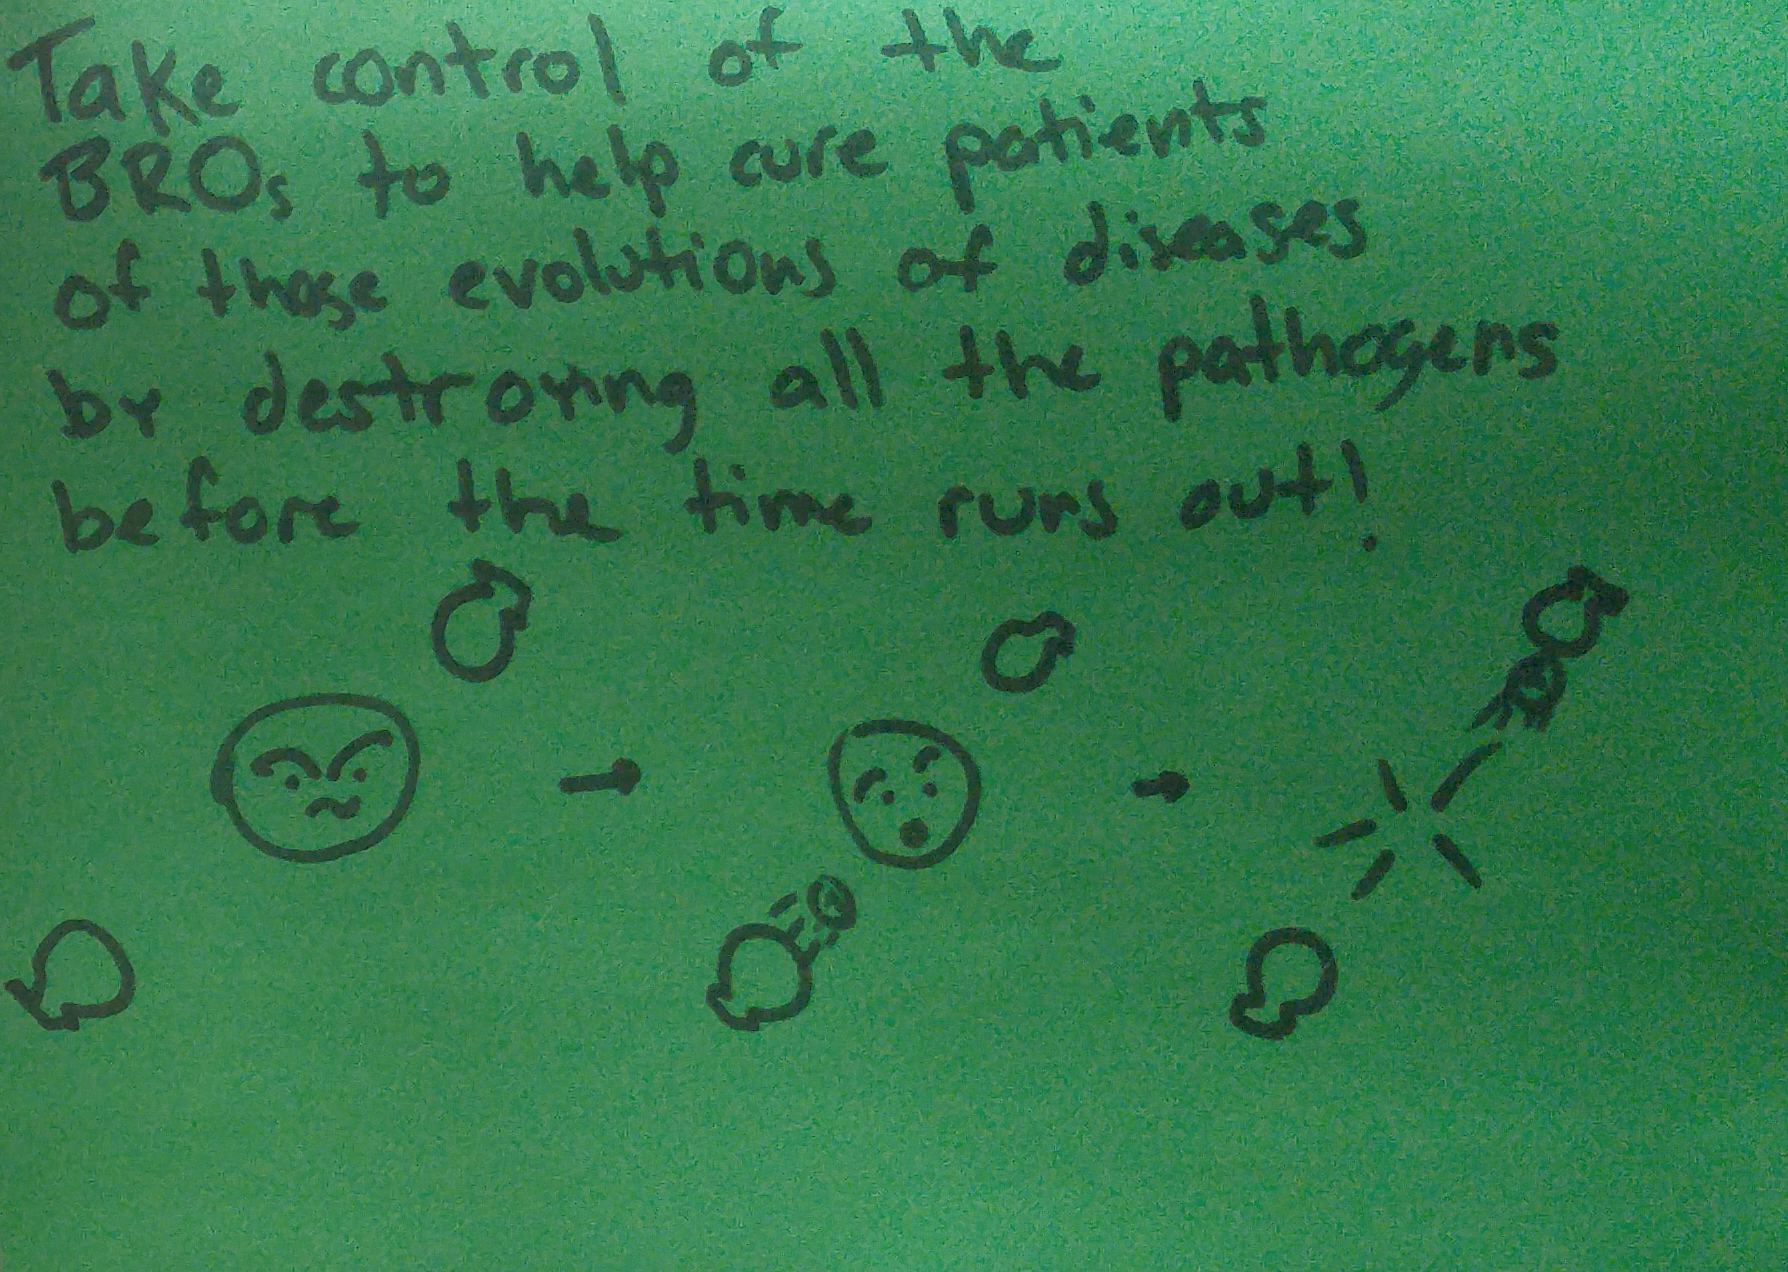 Take control of the
BROs to help cure patients
of those evolutions of diseases
by destroying all the pathogens
before the time runs out!